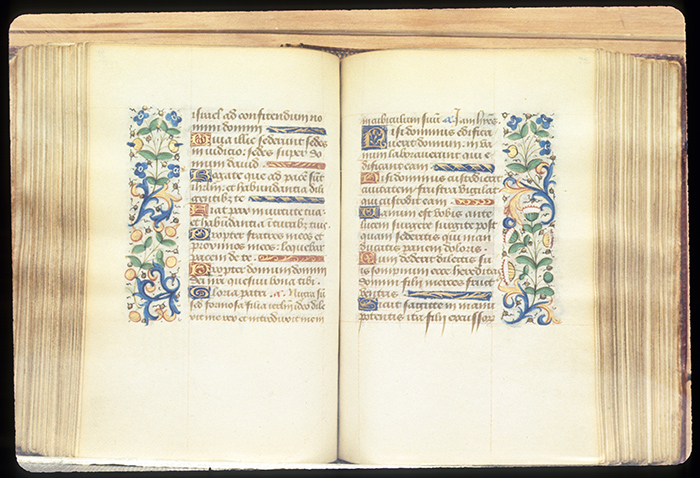 israel ad confitendum no
mini domini
Quia illic sederunt sedes
in iudicio: sedes super do
mum david
Rogate que ad pacē sūt
ihrlm: et habundantia dili
gentibz te
Fiat pax in virtute tua:
et habundantia ī turribz tuis
Propter fratres meos et
proximos meos: loquebar
pacem de te
Propter domum domini
dei nr̄i quesivi bona tibi
Gloria patri a. Nigra su
sed formosa filia ierlm ideo dile
xit me rex et introduxit me in
cubiculum suū a. Jam hyēs
Nisi dominus edifica
verit domum: in va
num laboraverunt qui e
dificant eam
Nisi dominus custodierit
civitatem frustra vigilat
qui custodit eam
Vanum est vobis ante
lucem surgere surgite post
quam sederitis qui man
ducatis panem doloris
Cum dederit dilectis su
is sompnum ecce heredita
domini filii merces fruct
ventris
Sicut sagitte in manu
potentis ita filii excussor